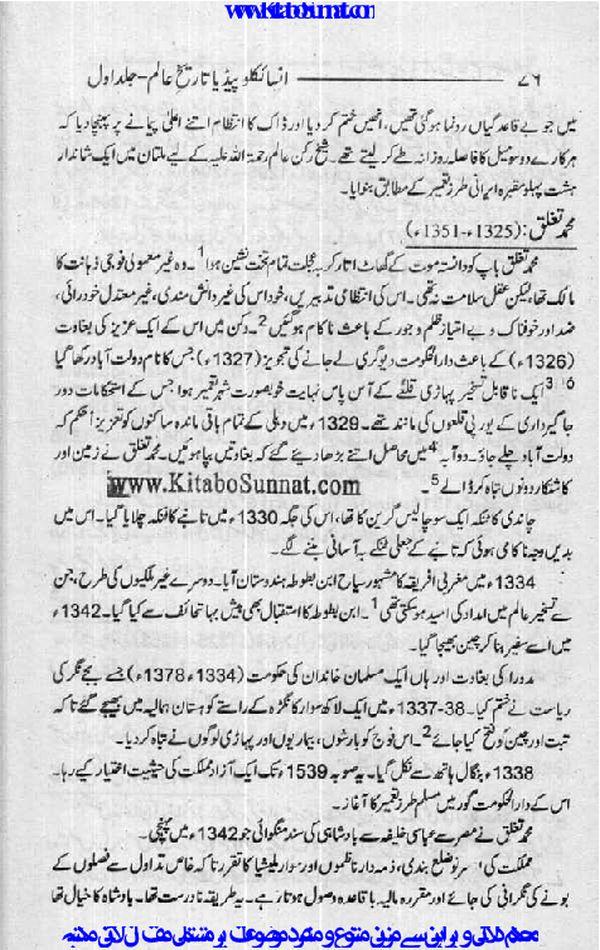 www.KitaboSunnat.com
۷۶ انسائیکلوپیڈیا تاریخِ عالم – جلد اول
میں جو بے قاعدگیاں رونما ہوگئی تھیں، انھیں ختم کر دیا اور ڈاک کا انتظام اتنے اعلیٰ پیمانے پر پہنچا دیا کہ
ہرکارے دو سو میل کا فاصلہ روزانہ طے کر لیتے تھے۔ شیخ رکن عالم رحمۃ اللہ علیہ کے لیے ملتان میں ایک شاندار
ہشت پہلو مقبرہ ایرانی طرز تعمیر کے مطابق بنوایا۔
محمد تغلق: (1325ء-1351ء)
محمد تغلق باپ کو دانستہ موت کے گھاٹ اتار کر بہ عجلت تمام تخت نشین ہوا1۔ وہ غیر معمولی فوجی ذہانت کا
مالک تھا، لیکن عقل سلامت نہ تھی۔ اس کی انتظامی تدبیریں، خود اس کی غیر دانش مندی، غیر معتدل خود رائی،
ضد اور خوفناک و بے امتیاز ظلم و جور کے باعث ناکام ہوگئیں2۔ دکن میں اس کے ایک عزیز کی بغاوت
(1326ء) کے باعث دارالحکومت دیوگری لے جانے کی تجویز (1327ء) جس کا نام دولت آباد رکھا گیا
3 ایک ناقابل تسخیر پہاڑی قلعے کے آس پاس نہایت خوبصورت شہر تعمیر ہوا جس کے استحکامات دور
جاگیرداری کے یورپی قلعوں کی مانند تھے۔ 1329ء میں دہلی کے تمام باقی ماندہ ساکنوں کو تعزیراً حکم کہ
دولت آباد چلے جاؤ۔ دوآبہ4 میں محاصل اتنے بڑھا دیئے گئے کہ بغاوتیں بپا ہوئیں۔ محمد تغلق نے زمین اور
کاشتکار دونوں تباہ کر ڈالے5۔ www.KitaboSunnat.com
چاندی کا ٹنکہ ایک سو چالیس گرین کا تھا، اس کی جگہ 1330ء میں تانبے کا ٹنکہ چلایا گیا۔ اس میں
بدیں وجہ ناکامی ہوئی کہ تانبے کے جعلی ٹنکے بہ آسانی بننے لگے۔
1334ء میں مغربی افریقہ کا مشہور سیاح ابن بطوطہ ہندوستان آیا۔ دوسرے غیر ملکیوں کی طرح، جن
سے تسخیر عالم میں امداد کی امید ہوسکتی تھی1۔ ابن بطوطہ کا استقبال بھی بیش بہا تحائف سے کیا گیا۔ 1342ء
میں اسے سفیر بنا کر چین بھیجا گیا۔
مدورا کی بغاوت اور ہاں ایک مسلمان خاندان کی حکومت (1334ء 1378ء) جسے بجے نگر کی
ریاست نے ختم کیا۔ 38-1337ء میں ایک لاکھ سوار کانگڑہ کے راستے کوہستان ہمالیہ میں بھیجے گئے تاکہ
تبت اور چین کو فتح کیا جائے2۔ اس فوج کو بارشوں، بیماریوں اور پہاڑی لوگوں نے تباہ کر دیا۔
1338ء بنگال ہاتھ سے نکل گیا۔ یہ صوبہ 1539ء تک ایک آزاد مملکت کی حیثیت اختیار کیے رہا۔
اس کے دارالحکومت گور میں مسلم طرز تعمیر کا آغاز۔
محمد تغلق نے مصر سے عباسی خلیفہ سے بادشاہی کی سند منگوائی جو 1342ء میں پہنچی۔
مملکت کی از سر نو ضلع بندی، ذمہ دار ناظموں اور سوار ملیشیا کا تقرر تاکہ خاص تداول سے فصلوں کے
بونے کی نگرانی کی جائے اور مقررہ مالیہ باقاعدہ وصول ہوتا رہے۔ یہ طریقہ نادرست تھا۔ بادشاہ کا خیال تھا
محکم دلائل و براہین سے مزین متنوع و منفرد موضوعات پر مشتمل مفت آن لائن مکتبہ